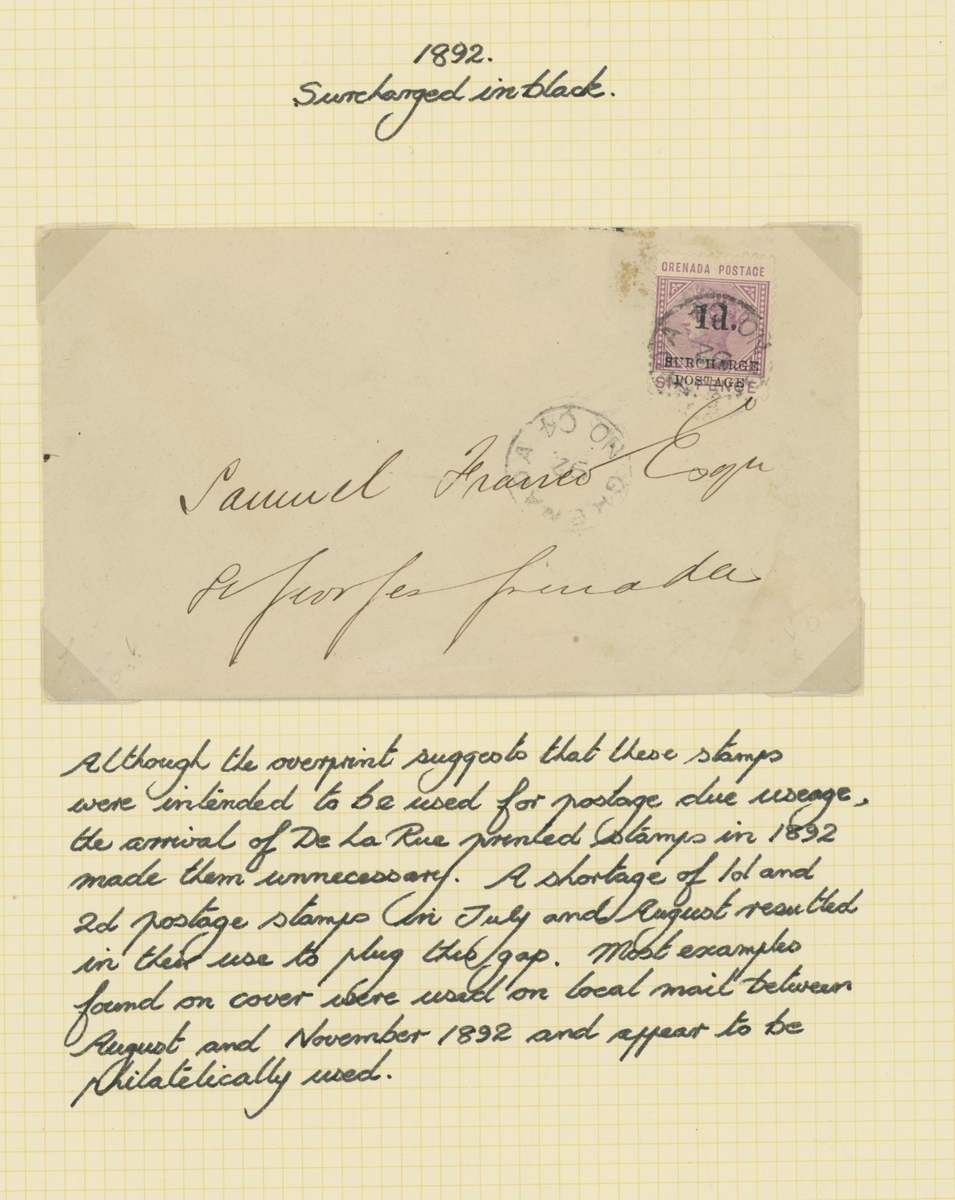 1892.
Surcharged in black.
GRENADA POSTAGE
1d.
SURCHARGE
POSTAGE
SIXPENCE
GRENADA NO 4 92
Samuel Franco Esqr
St Georges Grenada
Although the overprint suggests that these stamps
were intended to be used for postage due useage,
the arrival of De La Rue printed stamps in 1892
made them unnecessary. A shortage of 1d and
2d postage stamps in July and August resulted
in their use to plug this gap. Most examples
found on cover were used on local mail between
August and November 1892 and appear to be
philatelically used.